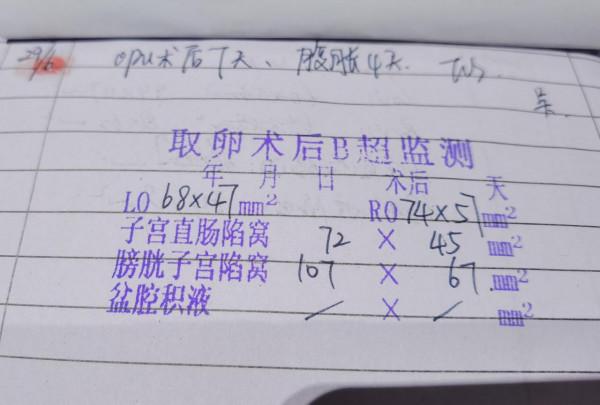 29/6 OPU术后7天、腹胀4天.
呆.
取卵术后B超监测
年 月 日 术后 天
LO 68×47mm² RO 74×57mm²
子宫直肠陷窝 72 × 45 mm²
膀胱子宫陷窝 107 × 67 mm²
盆腔积液 / × / mm²